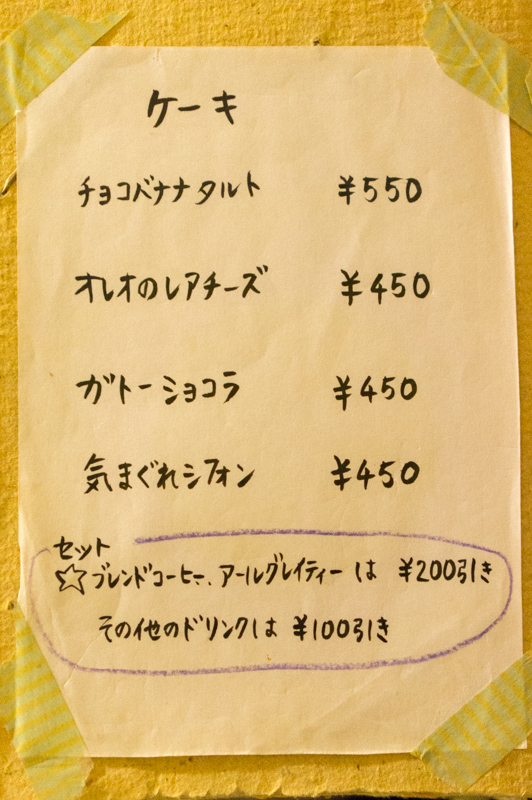 ケーキ
チョコバナナタルト ¥550
オレオのレアチーズ ¥450
ガトーショコラ ¥450
気まぐれシフォン ¥450
セット
☆ブレンドコーヒー、アールグレイティーは ¥200引き
その他のドリンクは ¥100引き